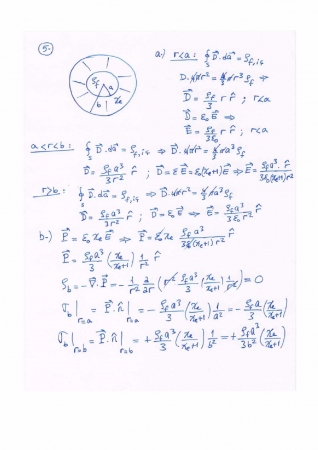 5-
ρf a b χe
a-) r<a : ∮s D⃗.da⃗ = ρf,iç
D.4πr² = 4/3 πr³ ρf ⇒
D⃗ = ρf/3 r r̂ ; r<a
D⃗ = ε₀ E⃗ ⇒
E⃗ = ρf/3ε₀ r r̂ ; r<a
a<r<b : ∮s D⃗.da⃗ = ρf,iç ⇒ D.4πr² = 4/3 πa³ ρf
D⃗ = ρf a³/3r² r̂ ; D⃗ = ε E⃗ = ε₀(χe+1) E⃗ ⇒ E⃗ = ρf a³/3ε₀(χe+1)r² r̂
r>b : ∮s D⃗.da⃗ = ρf,iç ⇒ D.4πr² = 4/3 πa³ ρf
D⃗ = ρf a³/3r² r̂ ; D⃗ = ε₀ E⃗ ⇒ E⃗ = ρf a³/3ε₀r² r̂
b-) P⃗ = ε₀ χe E⃗ ⇒ P⃗ = ε₀ χe ρf a³/3ε₀(χe+1)r² r̂
P⃗ = ρf a³/3 (χe/χe+1) 1/r² r̂
ρb = -∇⃗.P⃗ = -1/r² ∂/∂r (r² ρf a³/3 (χe/χe+1) 1/r²) = 0
σb|r=a = P⃗.n̂|r=a = -ρf a³/3 (χe/χe+1) 1/a² = -ρf a/3 (χe/χe+1)
σb|r=b = P⃗.n̂|r=b = +ρf a³/3 (χe/χe+1) 1/b² = +ρf a³/3b² (χe/χe+1)